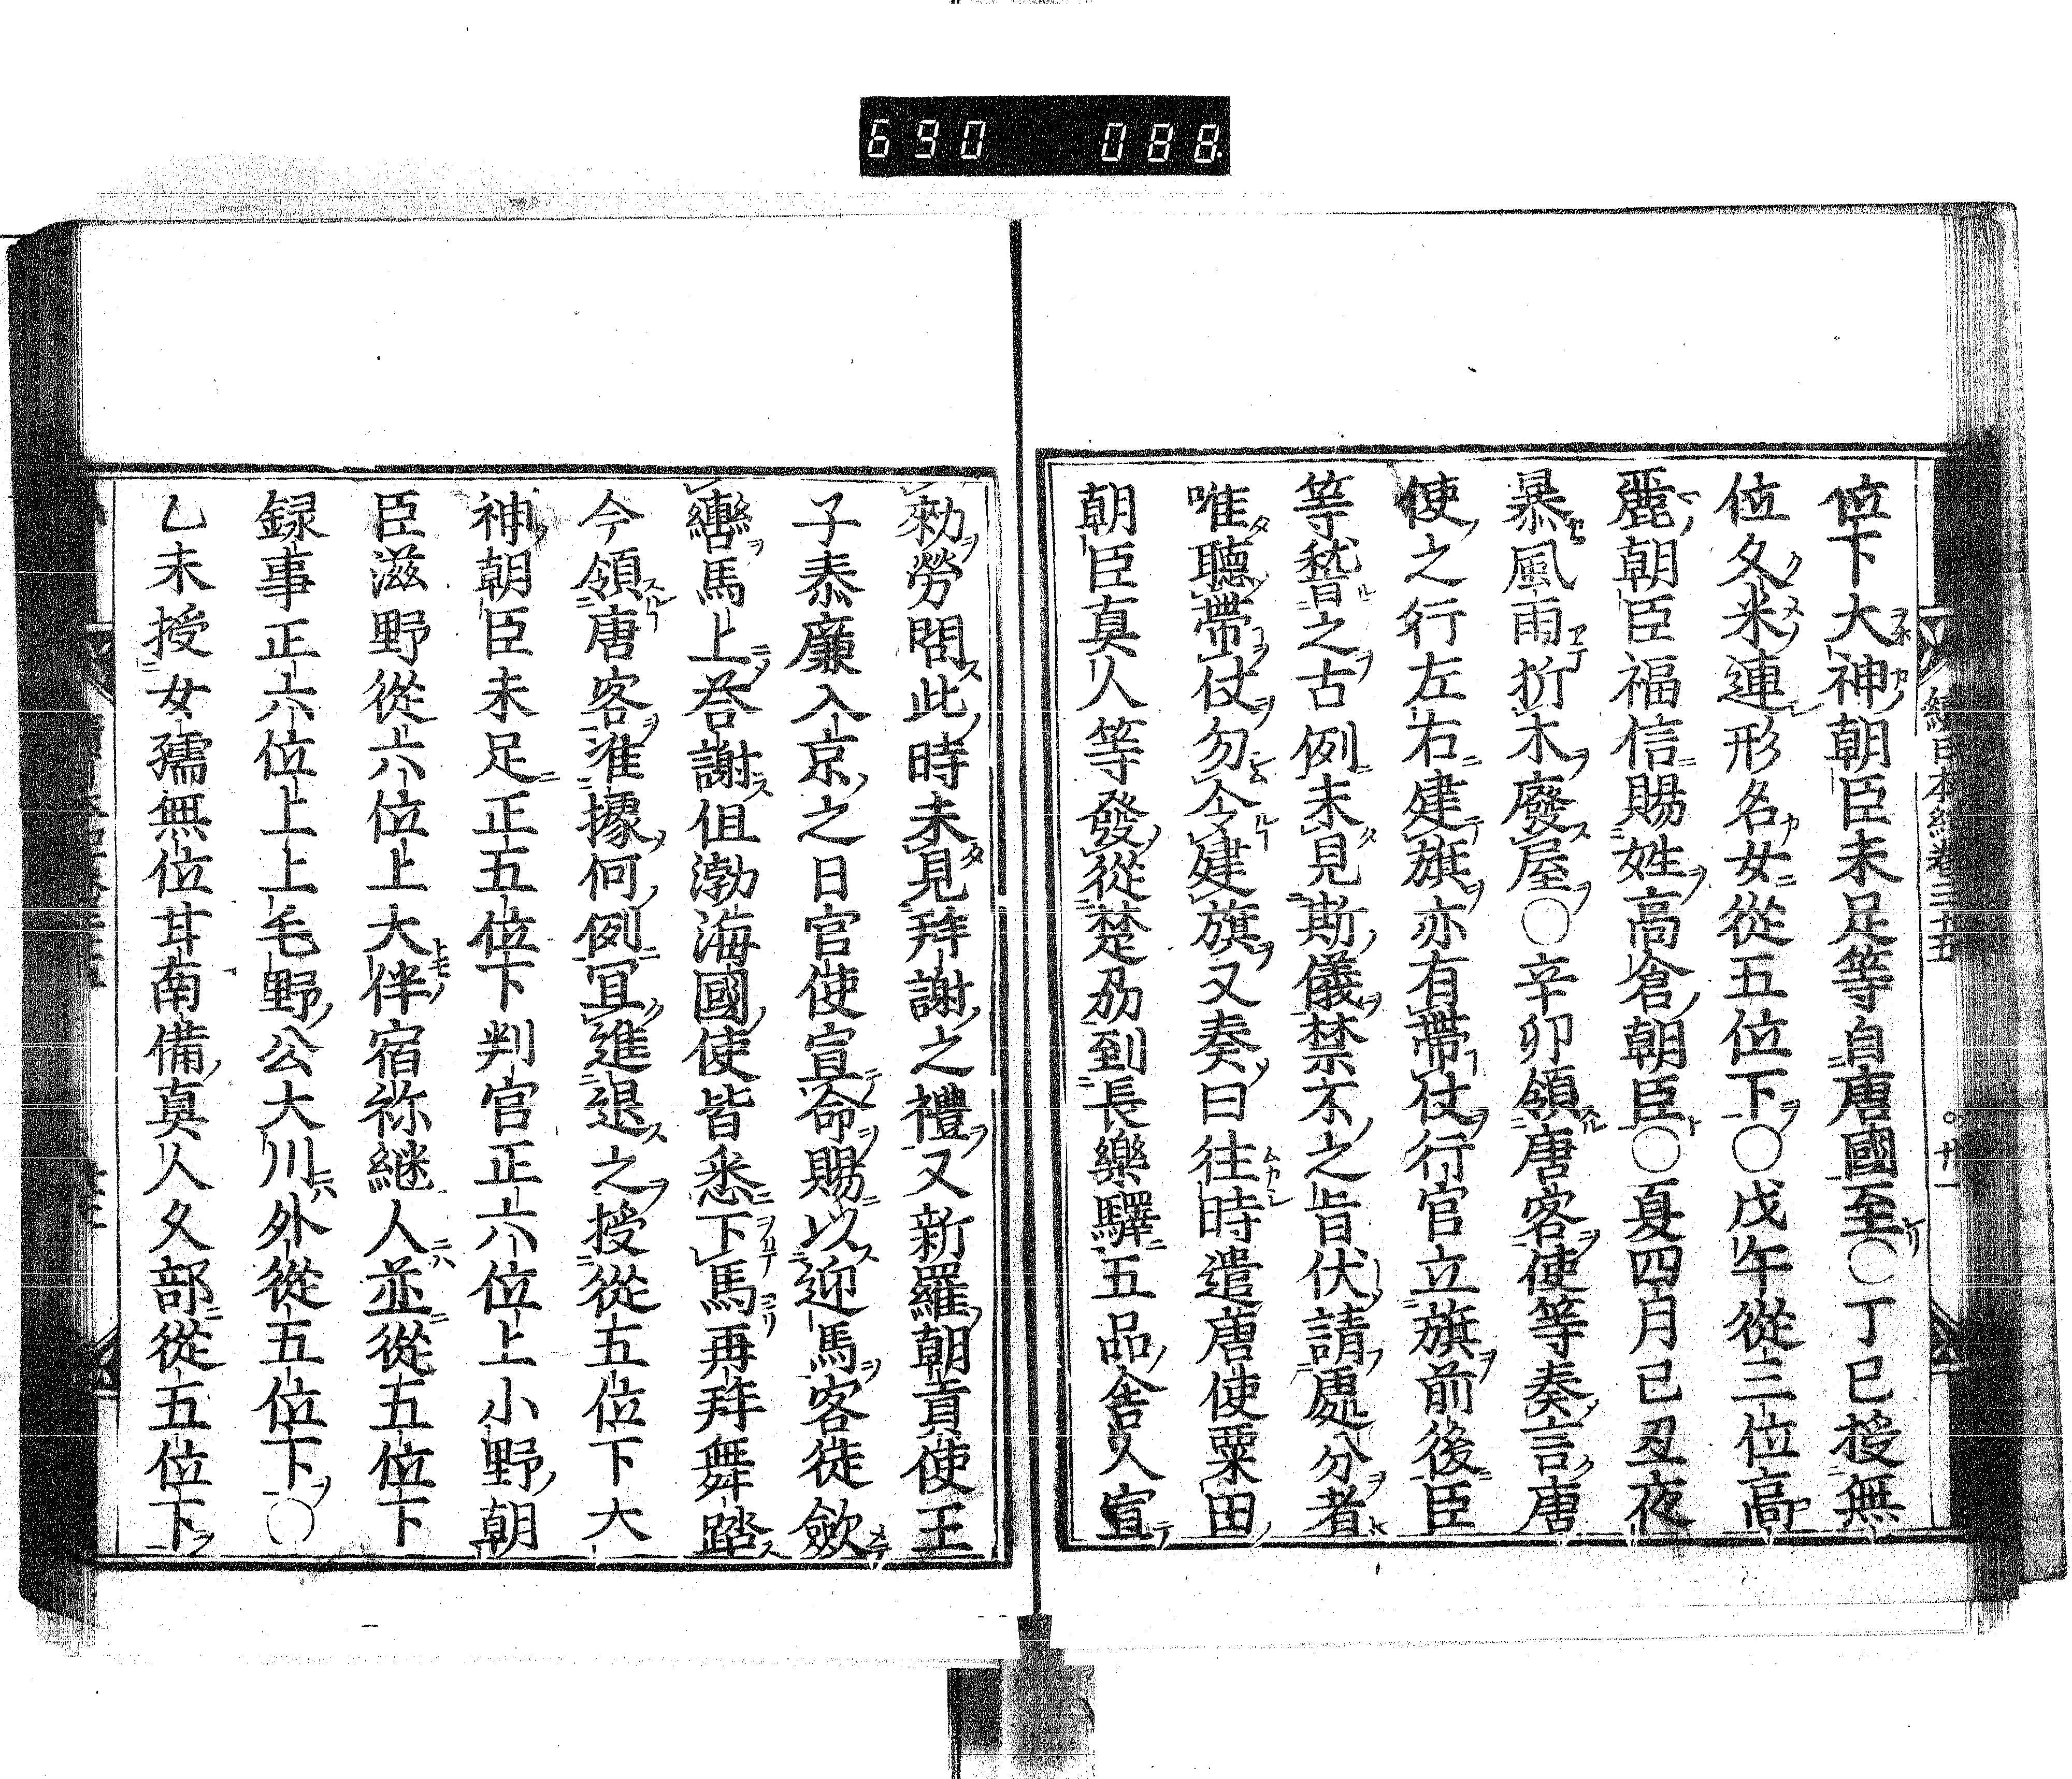 690 088
續日本紀卷三十五 廿一
位下大神朝臣末足等自唐國至○丁巳授無
位久米連形名女從五位下○戊午從三位高
麗朝臣福信賜姓高倉朝臣○夏四月己丑夜
暴風雨折木廢屋○辛卯領唐客使等奏言唐
使之行左右建旗亦有帶仗行官立旗前後臣
等稽之古例未見斯儀禁不之旨伏請處分者
唯聽帶仗勿令建旗又奏曰往時遣唐使粟田
朝臣真人等發從楚州到長樂驛五品舍人宣
勅勞問此時未見拜謝之禮又新羅朝貢使王
子泰廉入京之日官使宣命賜以迎馬客徒歛
轡馬上荅謝但渤海國使皆悉下馬再拜舞踏
今領唐客准據何例冝進退之授從五位下大
神朝臣末足正五位下判官正六位上小野朝
臣滋野從六位上大伴宿祢継人並從五位下
録事正六位上上毛野公大川外從五位下○
乙未授女孺無位甘南備真人久部從五位下